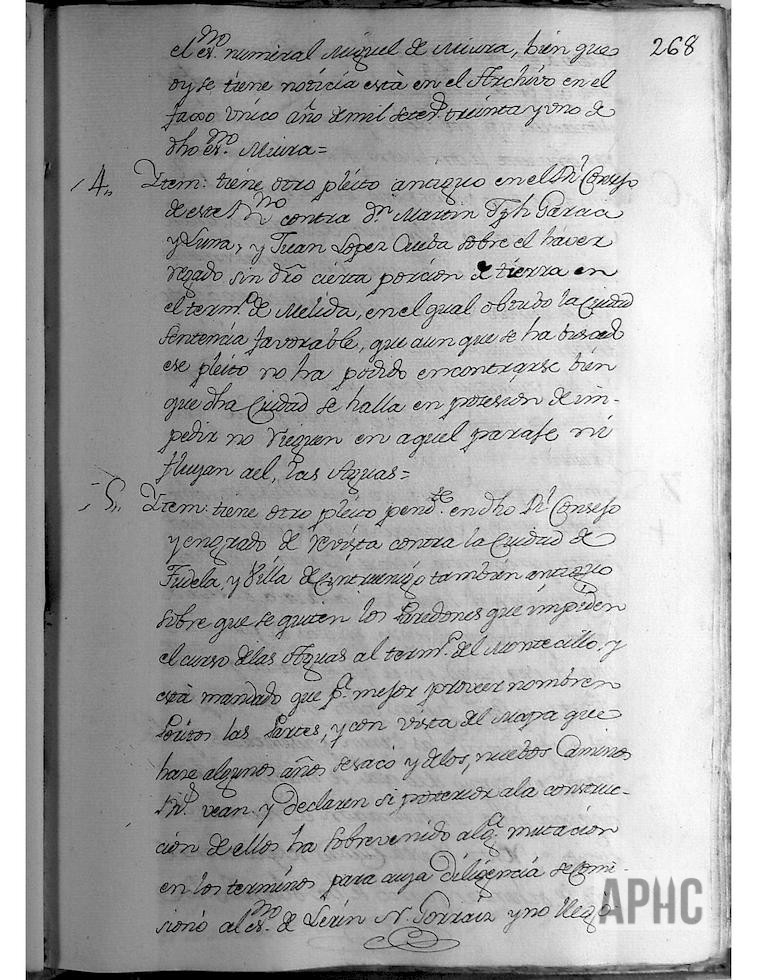 268
el es.no numeral Miguel de Miura, bien que
oy se tiene noticia està en el Archivo en el
faxo Unico año de mil setez.s treinta y uno de
dho es.no Miura=
4., Ytem: tiene otro pleito antiguo en el R.l Consejo
de este R.no contra d.n Martin Garcia
y Luna, y Juan Lopez sobre el haver
regado sin dro cierta porcion de tierra en
el term.o de Melida, en el qual obtubo la Ciudad
sentencia favorable, que aun que se ha buscado
ese pleito no ha podido encontrarse bien
que dha Ciudad se halla en posesion de im-
pedir no rieguen en aquel paraje ni
fluyan ael, las Aguas=
5., Ytem: tiene otro pleito pend.te en dho R.l Consejo
y en grado de revista contra la Ciudad de
Tudela, y Villa de Cintruenigo tambien antiguo
sobre que se quiten los Paredones que impiden
el curso de las Aguas al term.o del Montecillo, y
està mandado que p.a mejor proveer nombren
Peritos las Partes, y con vista del Mapa que
hare algunos años se sacó y de los nuebos Caminos
R.s vean y declaren si posterior a la construc-
ción de ellos ha sobrevenido alg.a mutación
en los terminos para cuya diligencia se Comi-
sionó al es.no de Lerin N. Gorraiz y no llegó
APHC